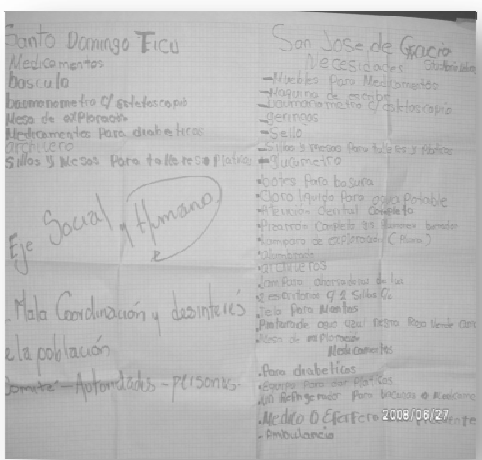 Santo Domingo Ticu
Medicamentos
bascula
baumanometro c/ estetoscopio
Mesa de exploración
Medicamentos Para diabeticos
archivero
Sillas y Mesas Para talleres o Platicas
Eje Social y Humano
. Mala Coordinación y desinteres
de la población
Comite - Autoridades - personas.
San Jose de Gracia
Necesidades
- Muebles Para Medicamentos
- Maquina de escribir
- baumanometro c/ estetoscopio
- geringas
- Sello
- Sillas y Mesas Para talleres y Platicas
- Glucometro
botes Para basura
Cloro liquido Para agua Potable
Atencion dental Completa
Pizarron Completo
lampara de exploracion
archiveros
lampara ahorradora de luz
2 escritorios
tela Para Mantas
Mesa de exploración
Medicamentos
. Para diabeticos
Equipo Para dar Platicas
un Refrigerador Para Vacunas o Medicame
. Medico o
2008/06/27
- Ambulancia